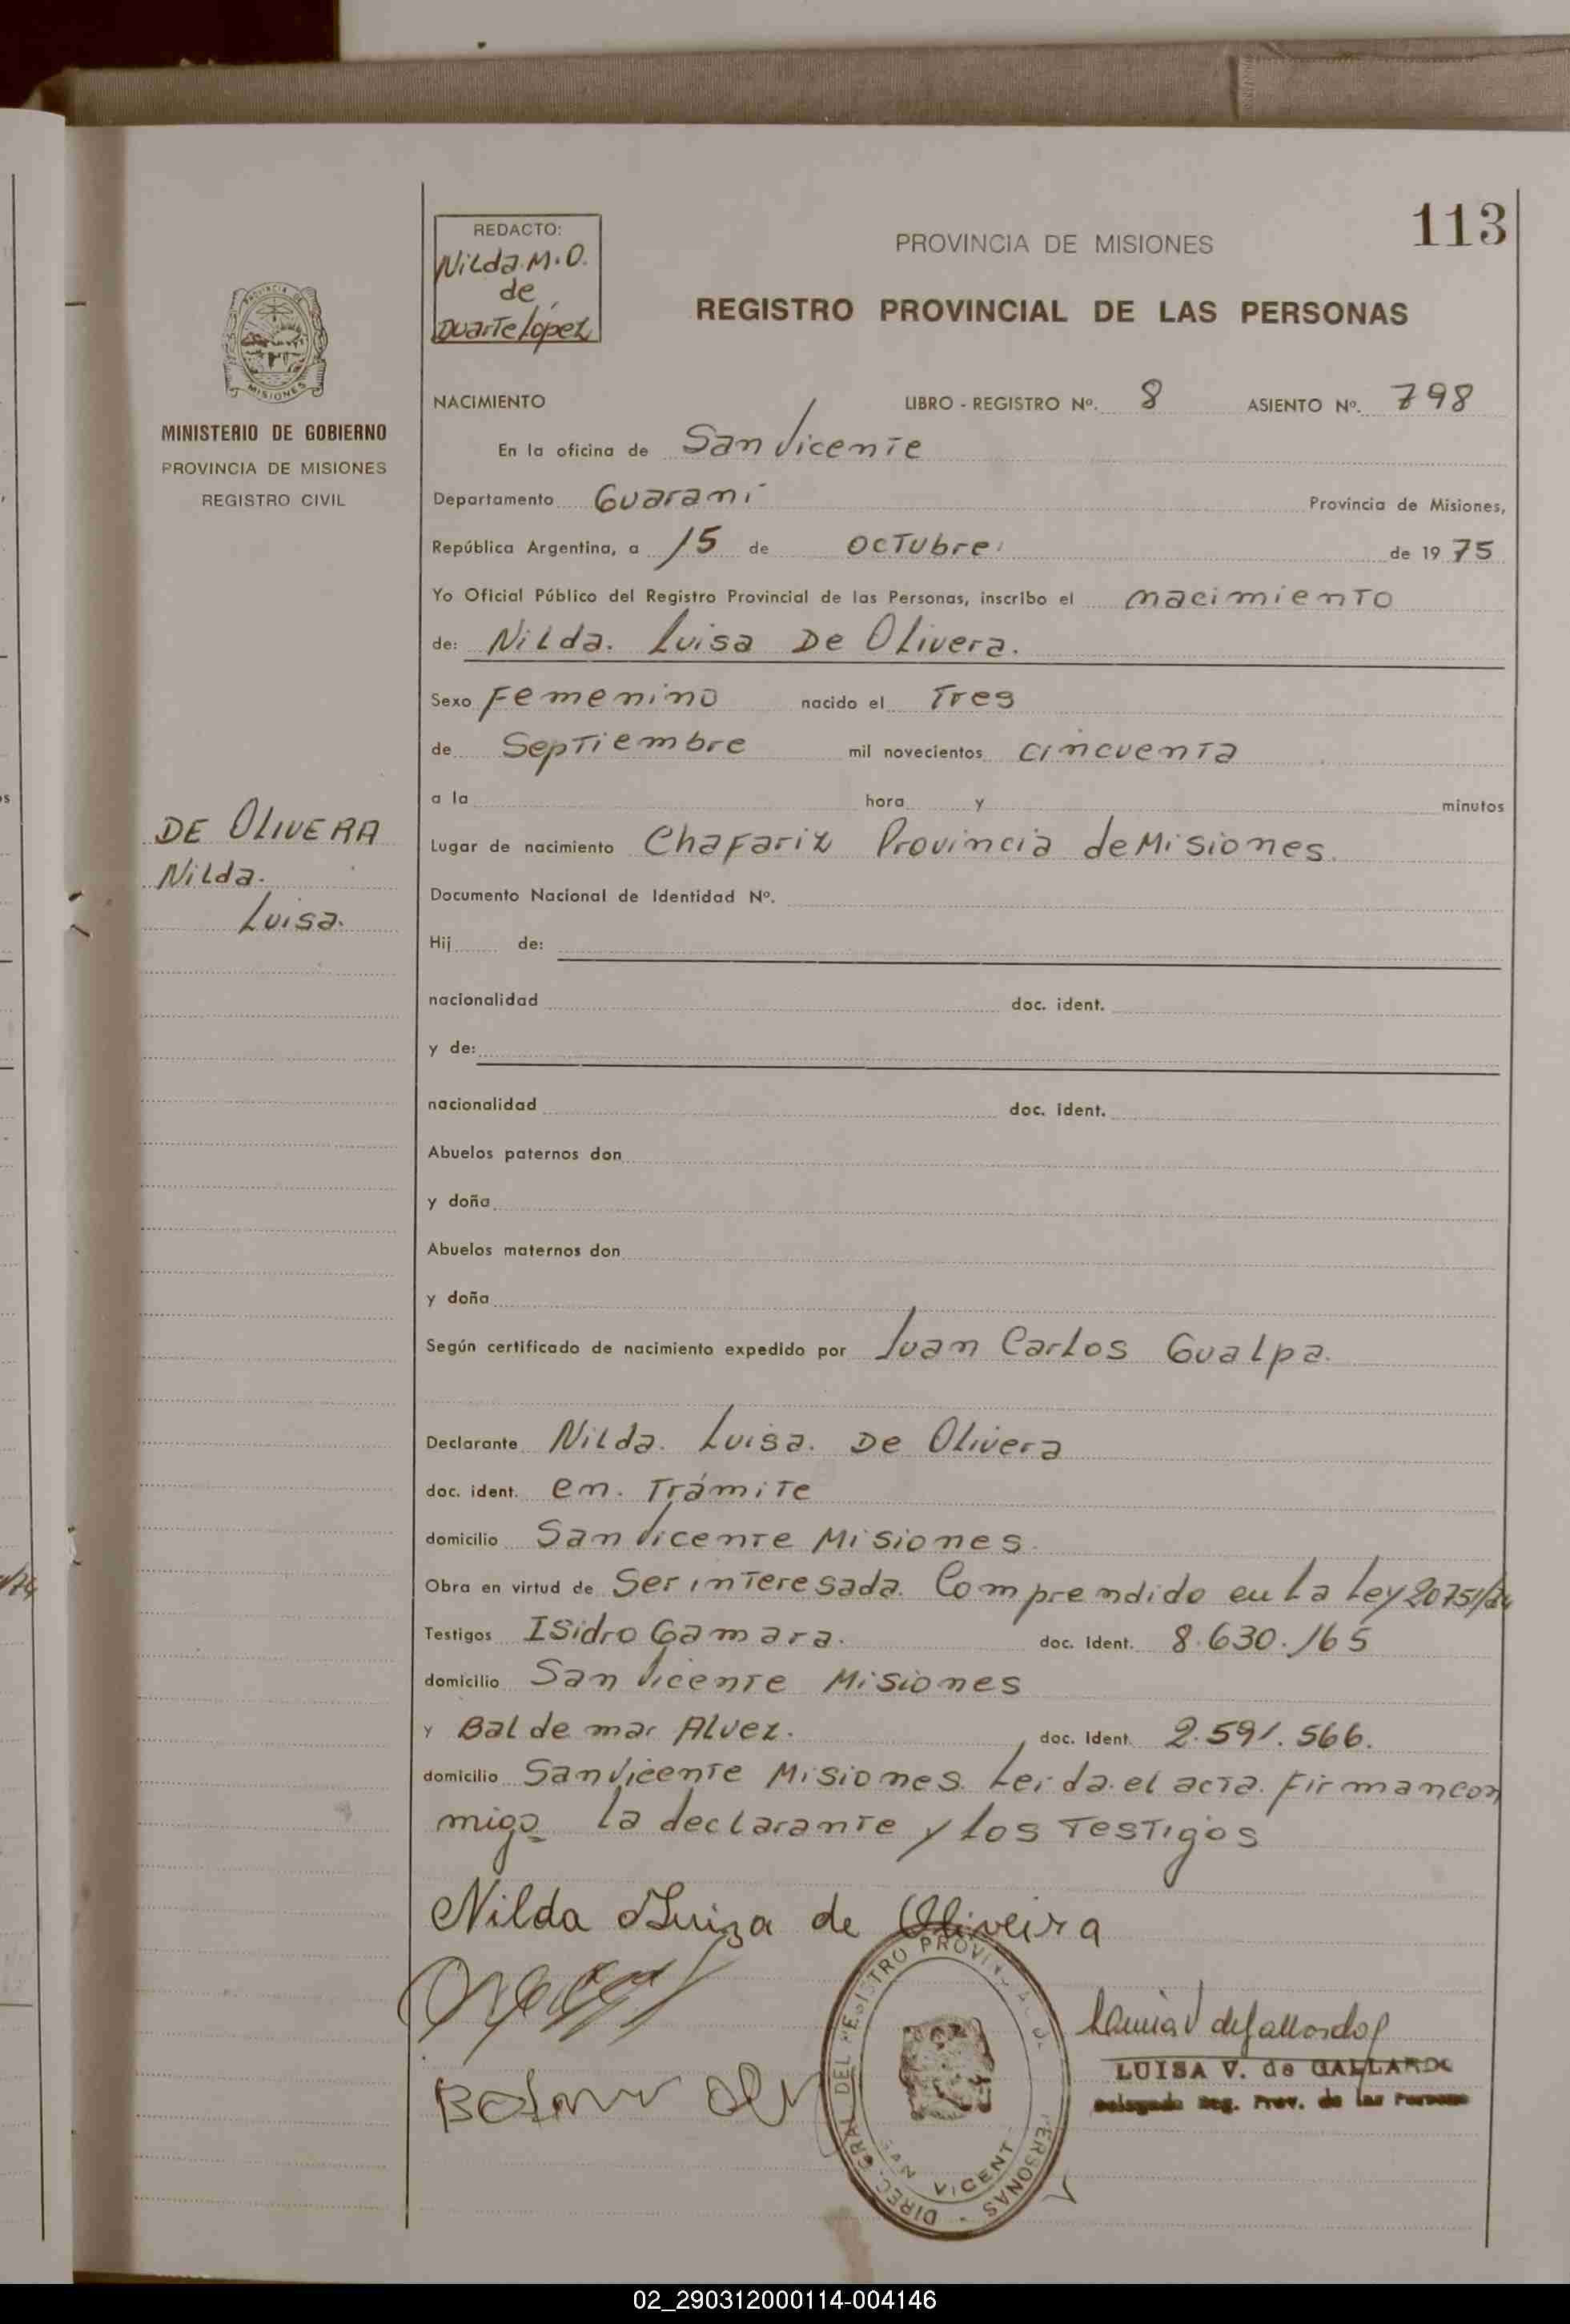 113
REDACTO:
Nilda M.O.
de
Duarte López
PROVINCIA DE MISIONES
REGISTRO PROVINCIAL DE LAS PERSONAS
PROVINCIA DE
MISIONES
MINISTERIO DE GOBIERNO
PROVINCIA DE MISIONES
REGISTRO CIVIL
NACIMIENTO LIBRO - REGISTRO Nº. 8 ASIENTO Nº. 798
En la oficina de San Vicente
Departamento Guaraní Provincia de Misiones,
República Argentina, a 15 de octubre de 1975
Yo Oficial Público del Registro Provincial de las Personas, inscribo el nacimiento
de: Nilda. Luisa De Olivera.
Sexo Femenino nacido el Tres
de Septiembre mil novecientos cincuenta
a la hora y minutos
DE OLIVERA
Nilda.
Luisa.
Lugar de nacimiento Chafariz Provincia de Misiones.
Documento Nacional de Identidad Nº.
Hij de:
nacionalidad doc. ident.
y de:
nacionalidad doc. ident.
Abuelos paternos don
y doña
Abuelos maternos don
y doña
Según certificado de nacimiento expedido por Juan Carlos Gualpa.
Declarante Nilda. Luisa. De Olivera
doc. ident. en. Trámite
domicilio San Vicente Misiones.
Obra en virtud de Ser interesada. Comprendido en La Ley 20751/74
Testigos Isidro Gamara. doc. Ident. 8.630.165
domicilio San Vicente Misiones
y Baldemar Alvez. doc. Ident. 2.591.566.
domicilio San Vicente Misiones. Leida el acta. Firman con
migo la declarante y los Testigos
Nilda Luiza de Oliveira
LUISA V. de GALLARDO
Delegada Reg. Prov. de las Personas
DIREC. GRAL DEL REGISTRO PROVINCIAL DE PERSONAS
SAN VICENTE
02_290312000114-004146